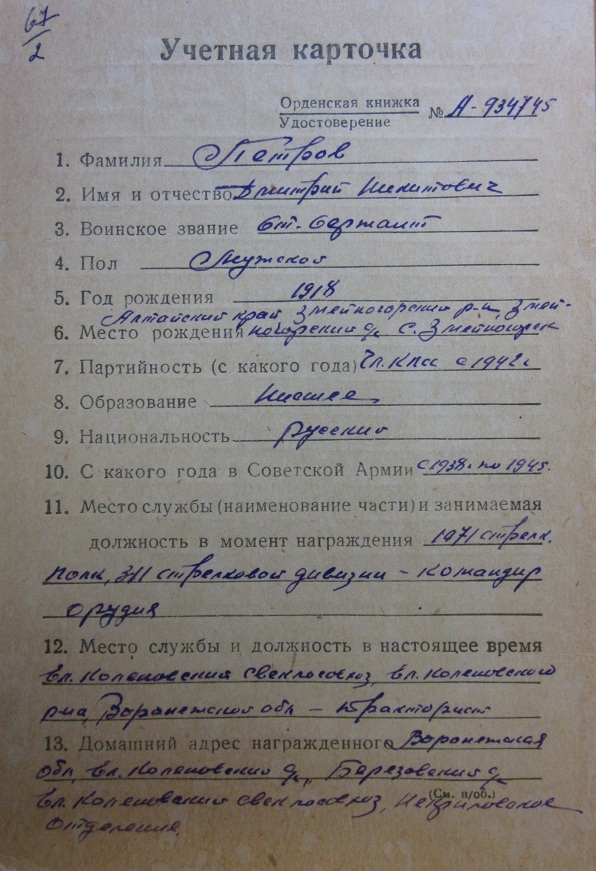 67
2
Учетная карточка
Орденская книжка
Удостоверение
№ А-934745
1. Фамилия Петров
2. Имя и отчество Дмитрий Никитович
3. Воинское звание Ст. Сержант
4. Пол Мужской
5. Год рождения 1918
Алтайский край Змеиногорский р-н, Змей-
6. Место рождения ногорский с. Змеиногорск
7. Партийность (с какого года) Чл. КПСС с 1942г.
8. Образование Низшее
9. Национальность русский
10. С какого года в Советской Армии с 1938г. по 1945г.
11. Место службы (наименование части) и занимаемая
должность в момент награждения 1071 стрелк.
полк, 311 стрелковой дивизии – командир
орудия
12. Место службы и должность в настоящее время
Ел. Коленовский свеклосовхоз, Ел. Коленовского
р-на, Воронежской обл – тракторист
13. Домашний адрес награжденного Воронежская
обл, Ел. Коленовский Березовский
(См. н/об.)
Ел. Коленовский свеклосовхоз,
отделение.